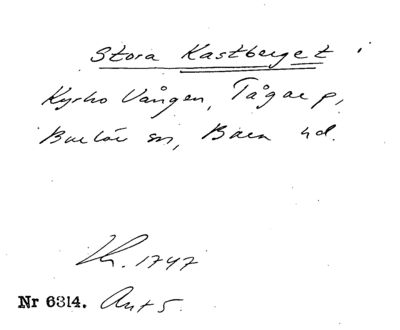 Stora Kastberget i
Kyrko Vången, Tågarp,
Burlöv sn, Bara hd.
Lh. 1747
Nr 6314. Ant 5.